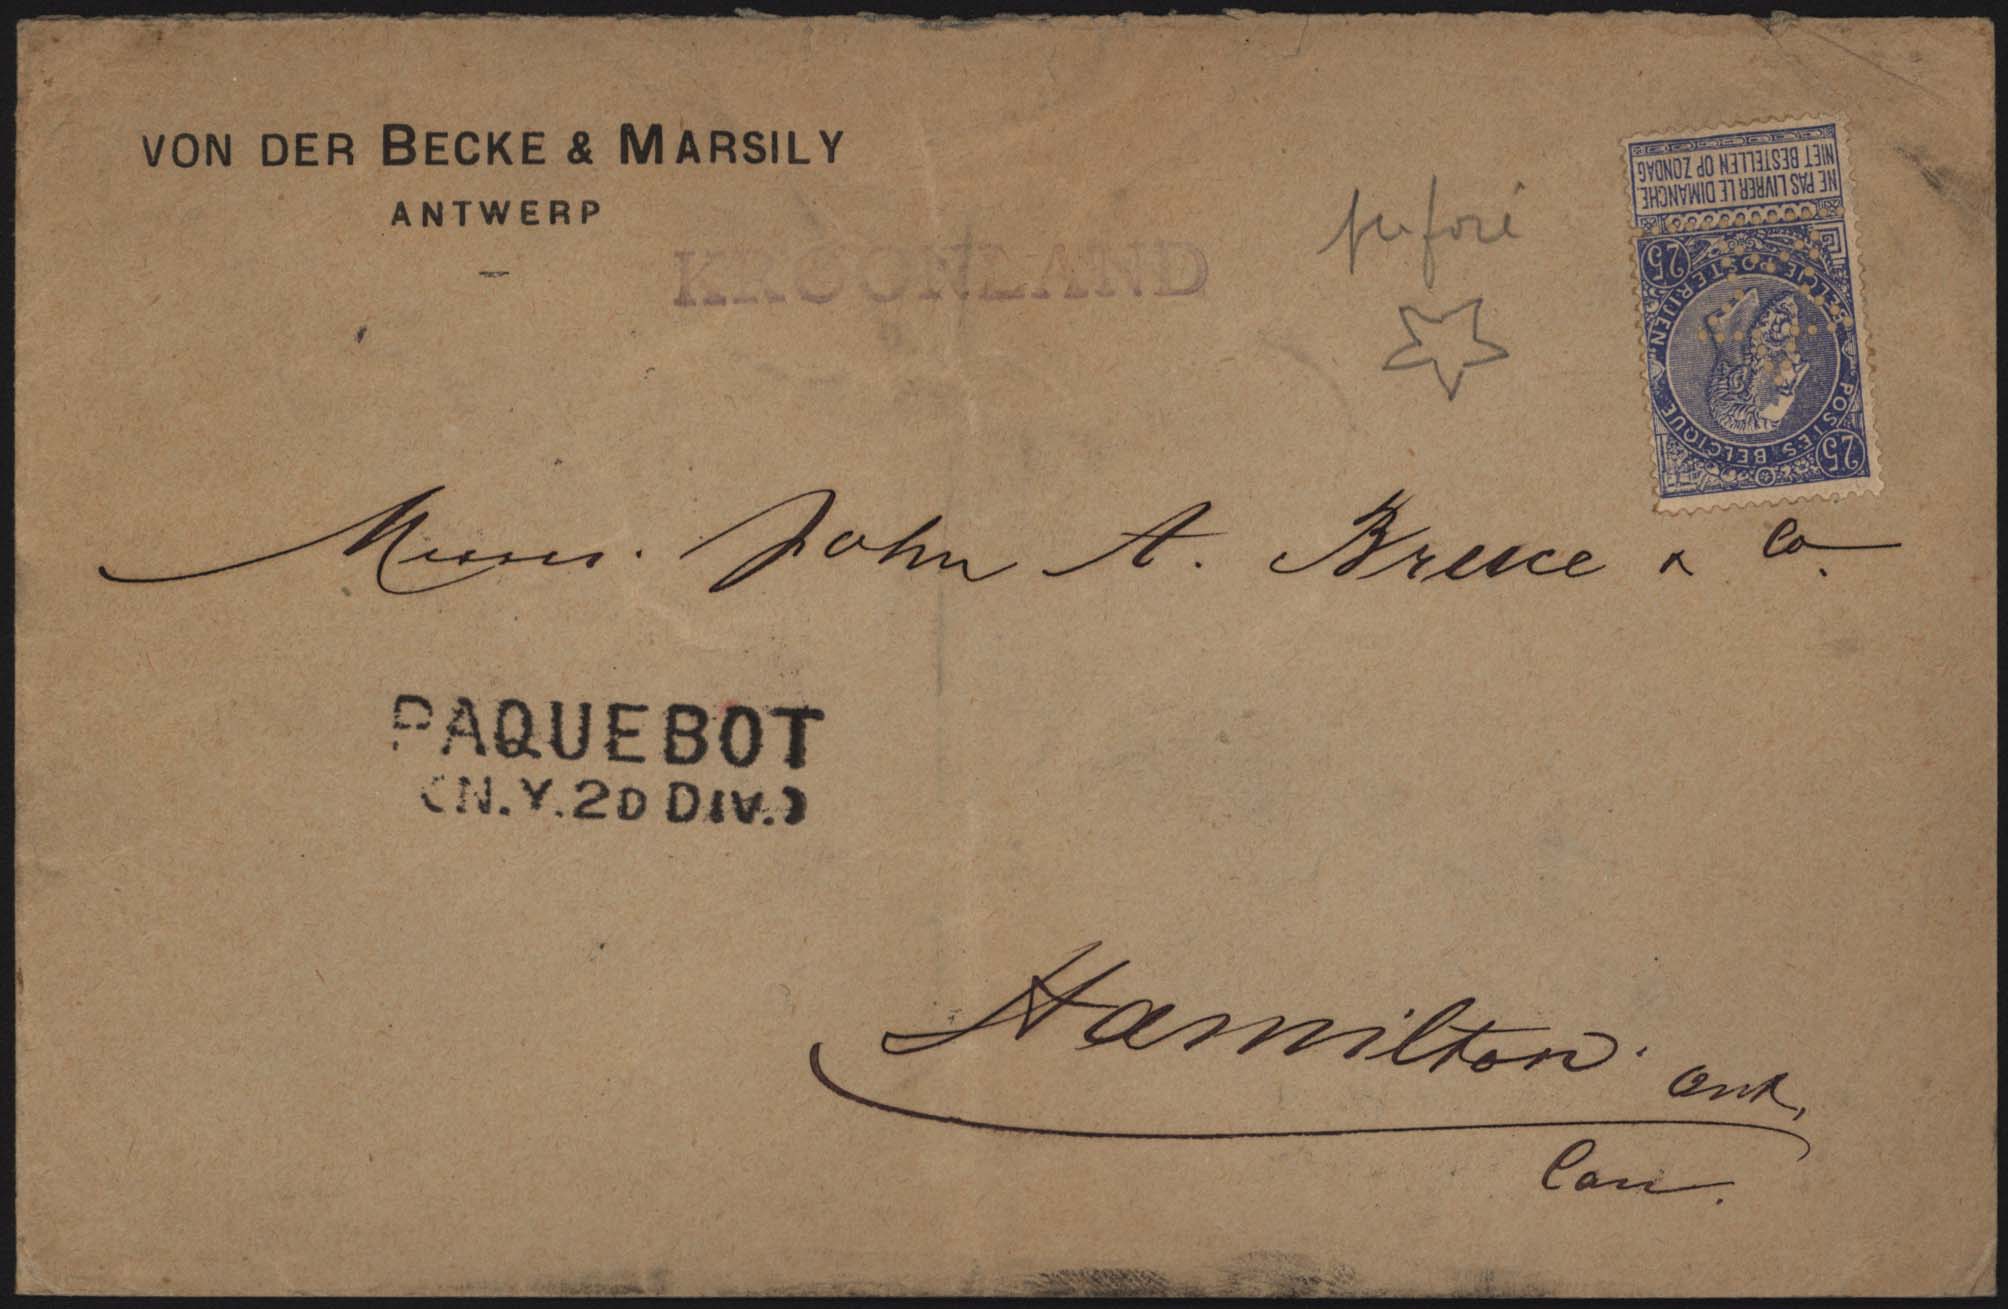 VON DER BECKE & MARSILY
ANTWERP
KROONLAND
perforé
NE PAS LIVRER LE DIMANCHE
NIET BESTELLEN OP ZONDAG
25
BELGIE POSTERIJEN
POSTES BELGIQUE
25
Messrs. John A. Bruce & Co.
PAQUEBOT
(N.Y. 2D DIV.)
Hamilton. Ont,
Can.